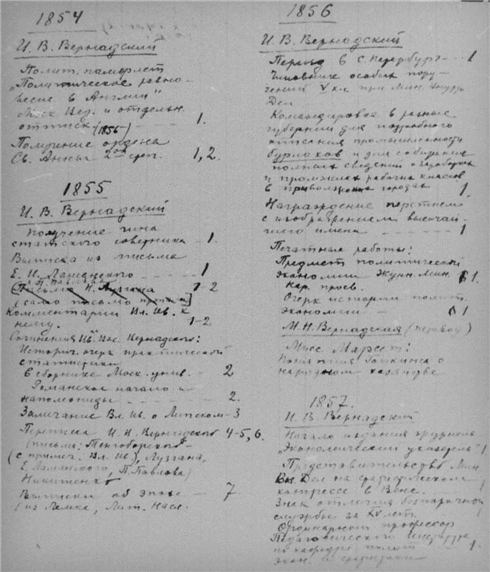 1854
И. В. Вернадский
Полит. памфлет
„Политическое равно-
весие в Англии"
Моск. Вед. и отдельн.
оттиск (1855) 1.
Получение ордена
Св. Анны 2ой степ. 1, 2.
1855
И. В. Вернадский
Получение чина
статского советника — 1.
Выписка из письма
Е. И. Ламанского — 1
1-2
(само письмо
Комментарии Вл. Ив. к
нему. 1-2
Сочинения Ив. Вас. Вернадского:
Историч. очерк практической
статистики
в сборнике Моск. унив. — 2
Романское начало и
2
Замечание Вл. Ив. о Липском - 3
Переписка И. В. Вернадского 4-5, 6.
(письма:
(с примеч. Вл. Ив.), Лузгина,
Е. Ламанского, П. Павлова)
Никитенко
Выписки об эпохе — 7
1856
И. В. Вернадский
Переезд в С. Петербург — 1
Чиновник особых пору-
чений V кл. при Мин. Внутр.
Дел
Командировка в разные
губернии для подробного
описания промышленности
бурлаков и для собирания
полных сведений о судоходн.
и промыслах рабочих классов
в приволжских городах 1.
Награждение перстнем
с изображением высочай-
шего имени — 1
Печатные работы:
Предмет политической
экономии Журн. Мин. 1.
Нар. просв.
Очерк истории полит.
экономии — 1
М. Н. Вернадская (перевод)
Мисс Марсет:
Понятия Гопкинса о
народном хозяйстве
1857.
И. В. Вернадский
Начало издания журнала
„Экономический указатель" 1
Представительство Мин.
Вн. Дел на статистическом
конгрессе в Вене.
Знак отличия беспорочной
службы за XV лет.
Ординарный профессор
Педагогического института
по кафедре полит.
экон. и статистики 1.